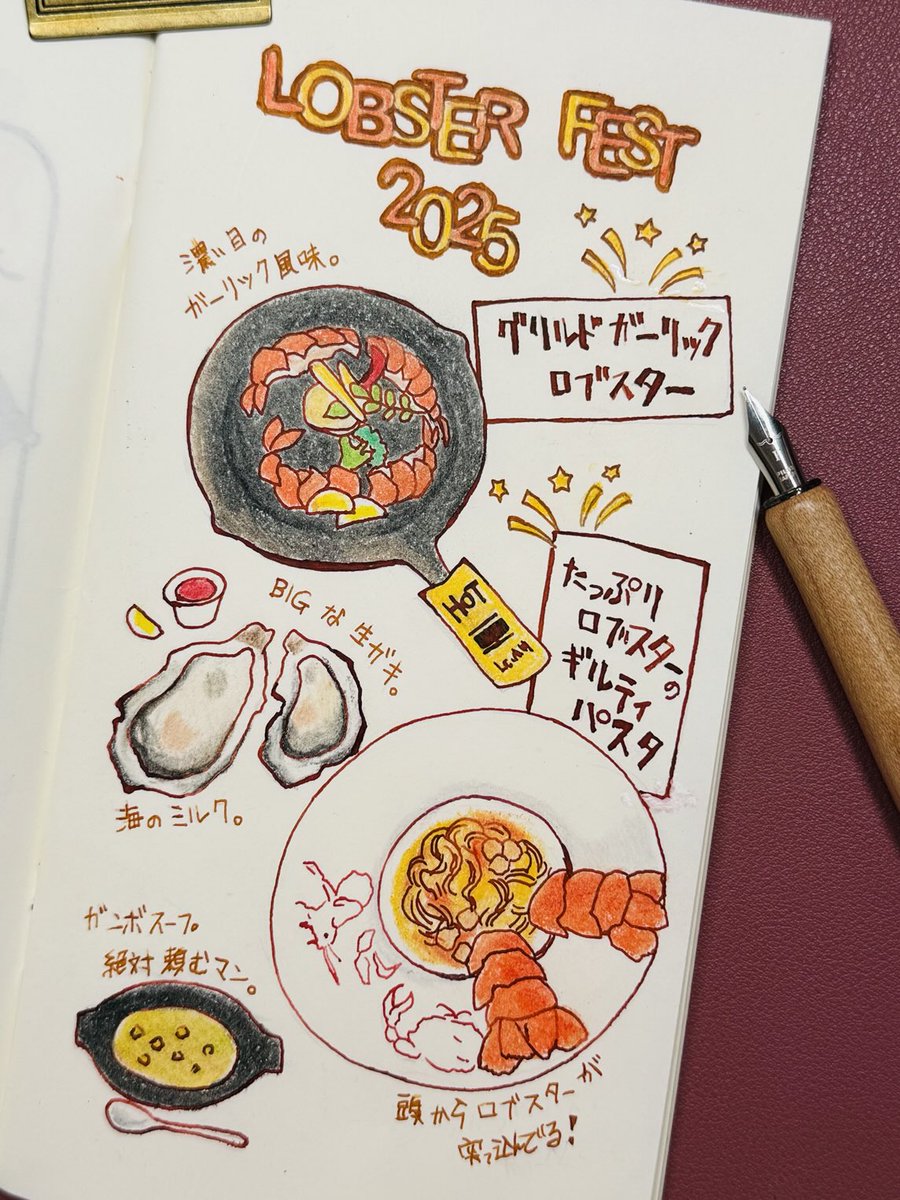 LOBSTER FEST
2025
濃い目の
ガーリック風味。
グリルド ガーリック
ロブスター
たっぷり
ロブスターの
ギルティ
パスタ
BIG な 生ガキ。
海のミルク。
ガンボスープ。
絶対 頼むマン。
頭から ロブスターが
突っ込んでる!